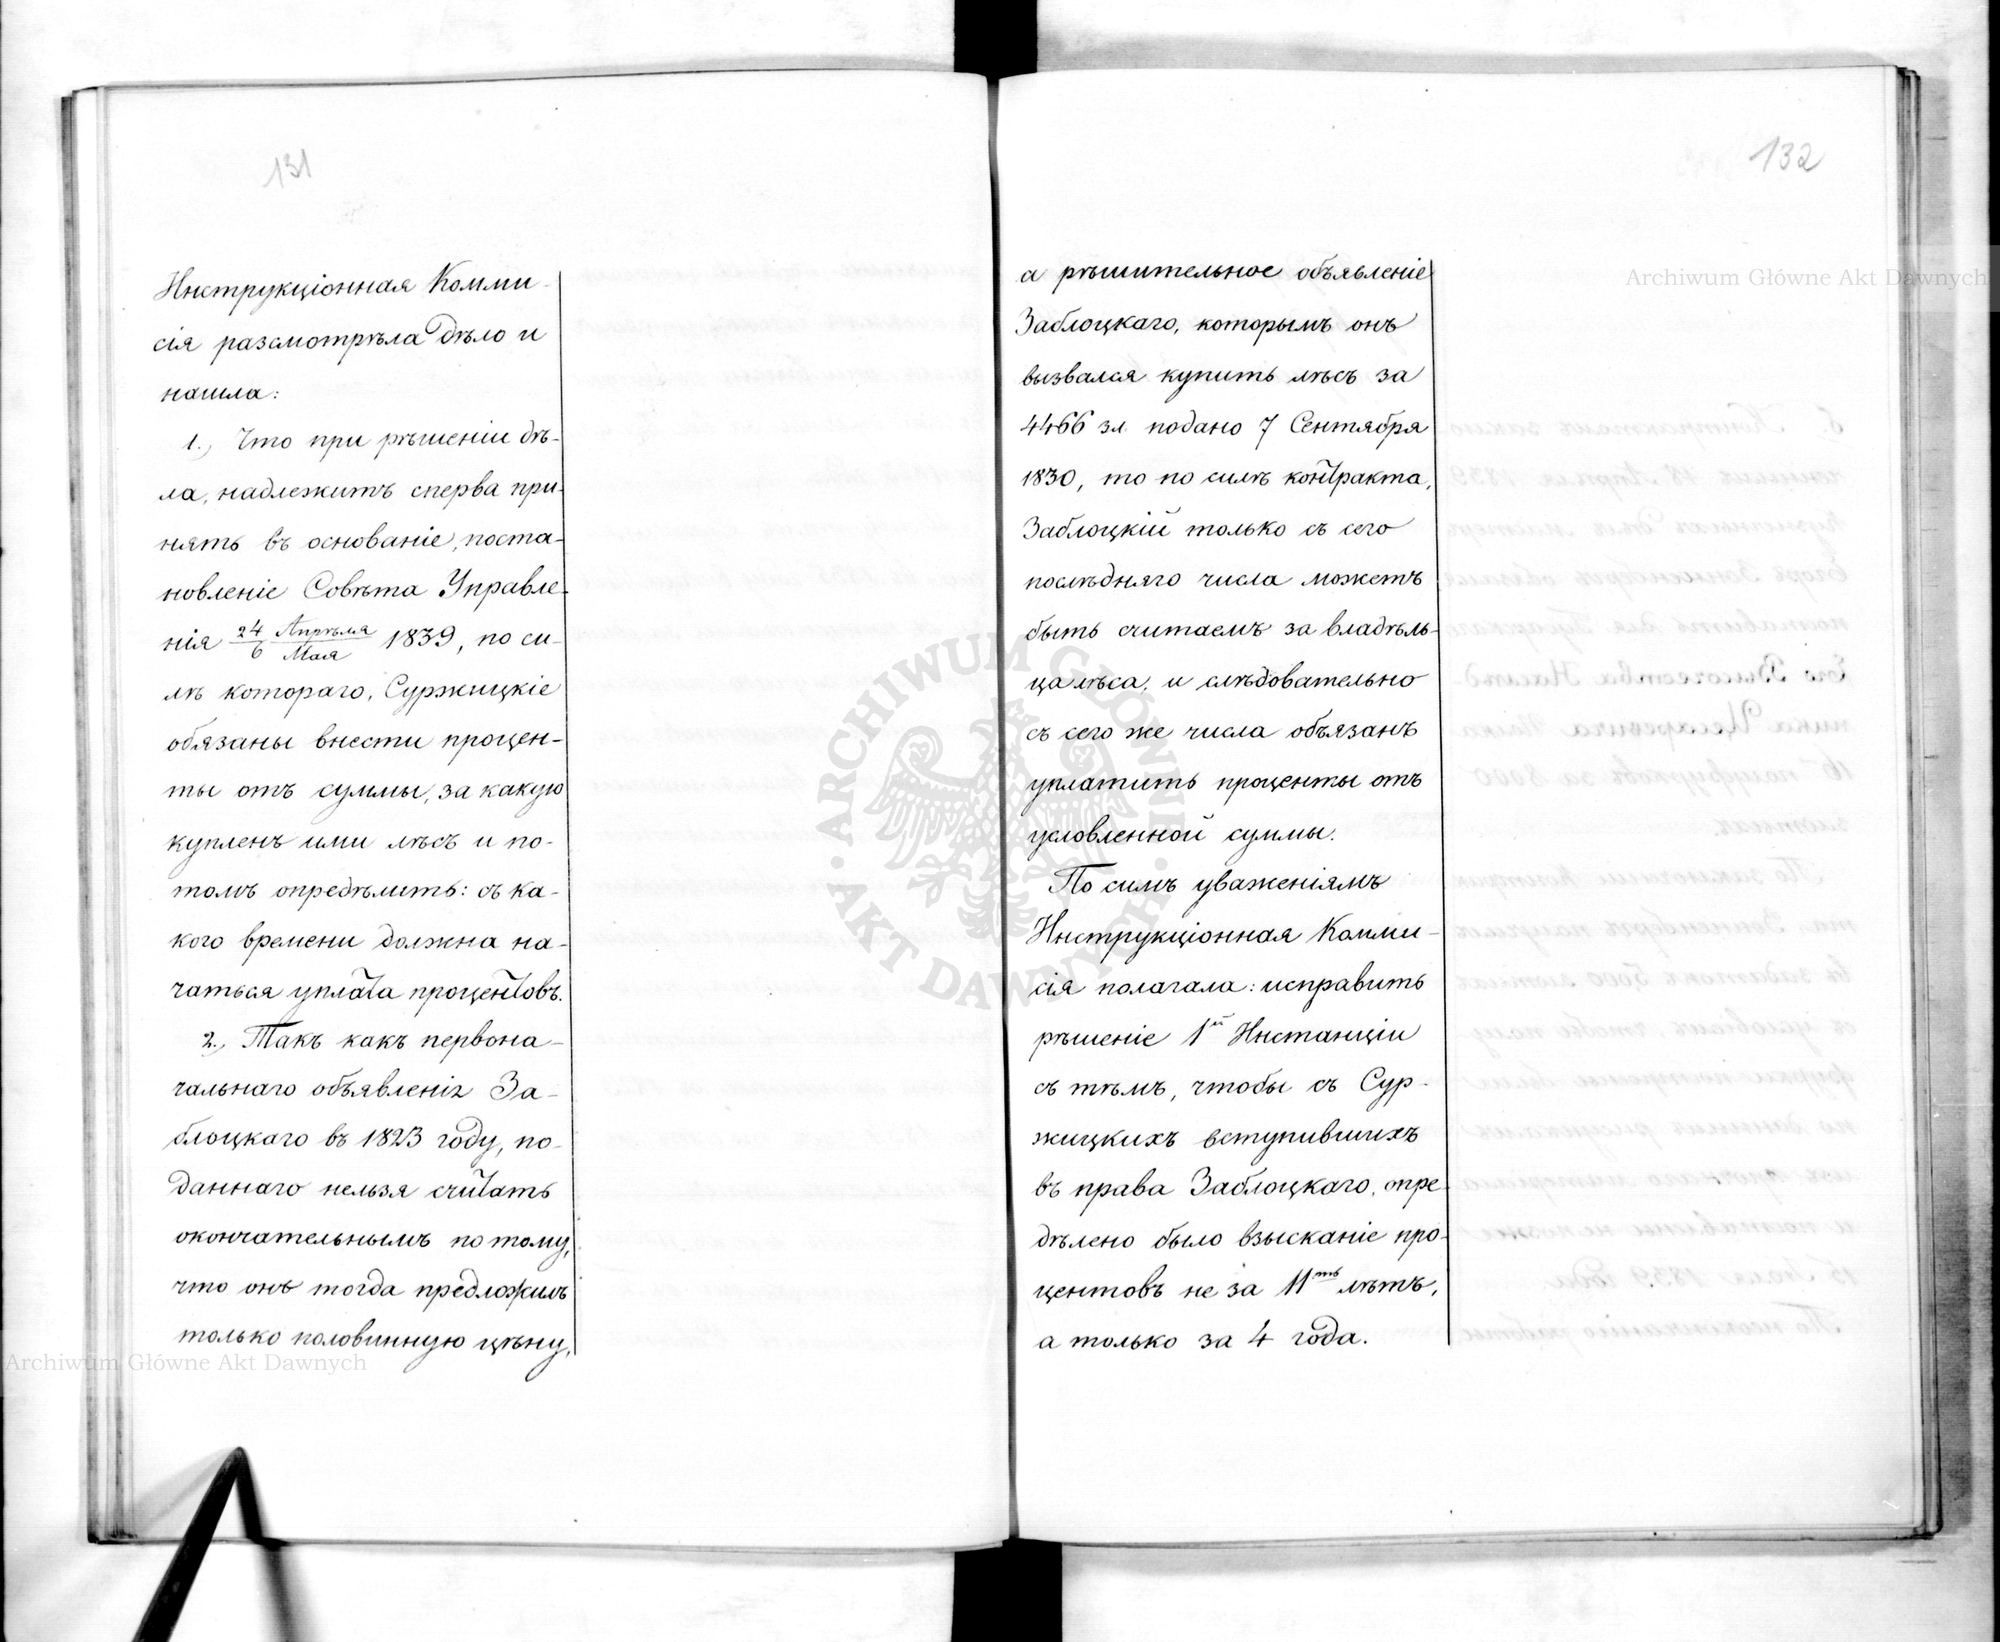 131
Инструкціонная Комми-
сія разсмотрѣла дѣло и
нашла:
1., Что при рѣшеніи дѣ-
ла, надлежитъ сперва при-
нять въ основаніе, поста-
новленіе Совѣта Управле-
нія 24 Апрѣля / 6 Мая 1839, по си-
лѣ котораго, Суржицкіе
обязаны внести процен-
ты отъ суммы, за какую
купленъ ими лѣсъ и по-
томъ опредѣлить: съ ка-
кого времени должна на-
чаться уплата процентовъ.
2., Такъ какъ первона-
чальнаго объявленія За-
блоцкаго въ 1823 году, по-
даннаго нельзя считать
окончательнымъ по тому,
что онъ тогда предложилъ
только половинную цѣну,
132
а рѣшительное объявленіе
Заблоцкаго, которымъ онъ
вызвался купить лѣсъ за
4466 зл. подано 7 Сентября
1830, то по силѣ контракта,
Заблоцкій только съ сего
послѣдняго числа можетъ
быть считаемъ за владѣль-
ца лѣса, и слѣдовательно
съ сего же числа объязанъ
уплатить проценты отъ
условленной суммы.
По симъ уваженіямъ
Инструкціонная Комми-
сія полагала: исправить
рѣшеніе 1й Инстанціи
съ тѣмъ, чтобы съ Сур-
жицкихъ вступившихъ
въ права Заблоцкаго, опре-
дѣлено было взысканіе про-
центовъ не за 11ть лѣтъ,
а только за 4 года.
Archiwum Główne Akt Dawnych
Archiwum Główne Akt Dawnych
ARCHIWUM GŁÓWNE · AKT DAWNYCH ·